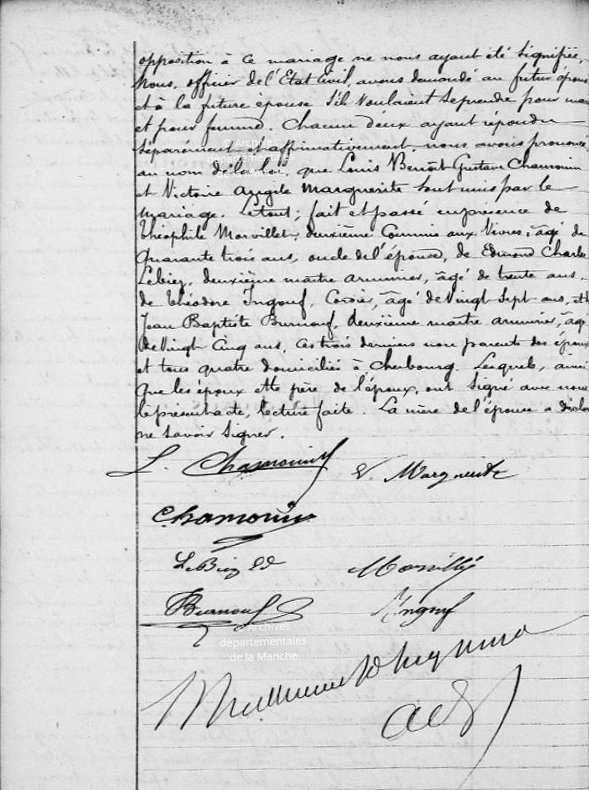 opposition à ce mariage ne nous ayant été signifiée,
Nous, officier de l'Etat Civil, avons demandé au futur époux
et à la future épouse s'ils voulaient se prendre pour mari
et pour femme. Chacun d'eux ayant répondu
séparément et affirmativement, nous avons prononcé
au nom de la loi, que Louis Benoît Gustave Chamonin
et Victoire Angèle Marguerite sont unis par le
mariage. Le tout, fait et passé en présence de
Théophile Morvillez, deuxième Commis aux Vivres, âgé de
quarante trois ans, oncle de l'épouse, de Edmond Charles
Lebiez, deuxième maître armurier, âgé de trente ans,
de Théodore Ingouf, âgé de Vingt Sept ans, et
Jean Baptiste Burnouf, deuxième maître armurier, âgé
de Vingt Cinq ans, Ces trois derniers non parents des époux
et tous quatre domiciliés à Cherbourg. Lesquels, ainsi
que les époux et le père de l'époux, ont signé avec nous
le présent acte, lecture faite. La mère de l'épouse a déclaré
ne savoir signer.
L. Chamonin V. Marguerite
Chamonin
LeBiez Ed
Burnouf Ingouf
Archives
départementales
de la Manche